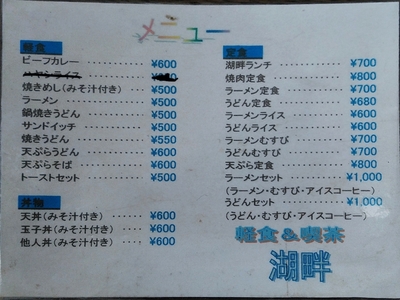 メニュー
軽食
ビーフカレー ‥‥‥ ¥600
ハヤシライス
焼きめし(みそ汁付き) ‥ ¥500
ラーメン ‥‥‥‥ ¥500
鍋焼きうどん ‥‥‥ ¥500
サンドイッチ ‥‥‥ ¥500
焼きうどん ‥‥‥‥ ¥550
天ぷらうどん ‥‥‥ ¥600
天ぷらそば ‥‥‥‥ ¥600
トーストセット ‥‥‥ ¥500
丼物
天丼(みそ汁付き) ‥‥ ¥600
玉子丼(みそ汁付き) ‥‥ ¥600
他人丼(みそ汁付き) ‥‥ ¥600
定食
湖畔ランチ ‥‥‥‥ ¥700
焼肉定食 ‥‥‥‥ ¥800
ラーメン定食 ‥‥‥ ¥700
うどん定食 ‥‥‥‥ ¥680
ラーメンライス ‥‥‥ ¥600
うどんライス ‥‥‥ ¥600
ラーメンむすび ‥‥‥ ¥700
うどんむすび ‥‥‥ ¥700
天ぷら定食 ‥‥‥‥ ¥800
ラーメンセット ‥‥‥ ¥1,000
(ラーメン・むすび・アイスコーヒー)
うどんセット ‥‥‥‥ ¥1,000
(うどん・むすび・アイスコーヒー)
軽食&喫茶
湖畔